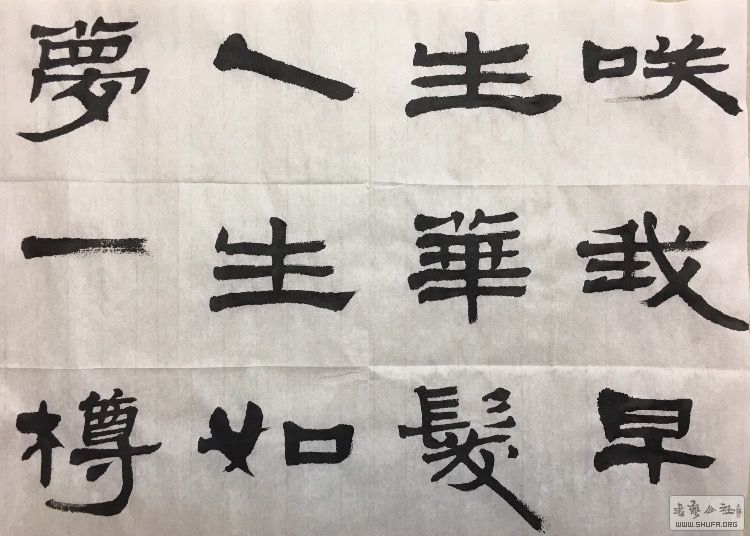 咲我早
生華髮
人生如
夢一樽
書藝公社
WWW.SHUFA.ORG